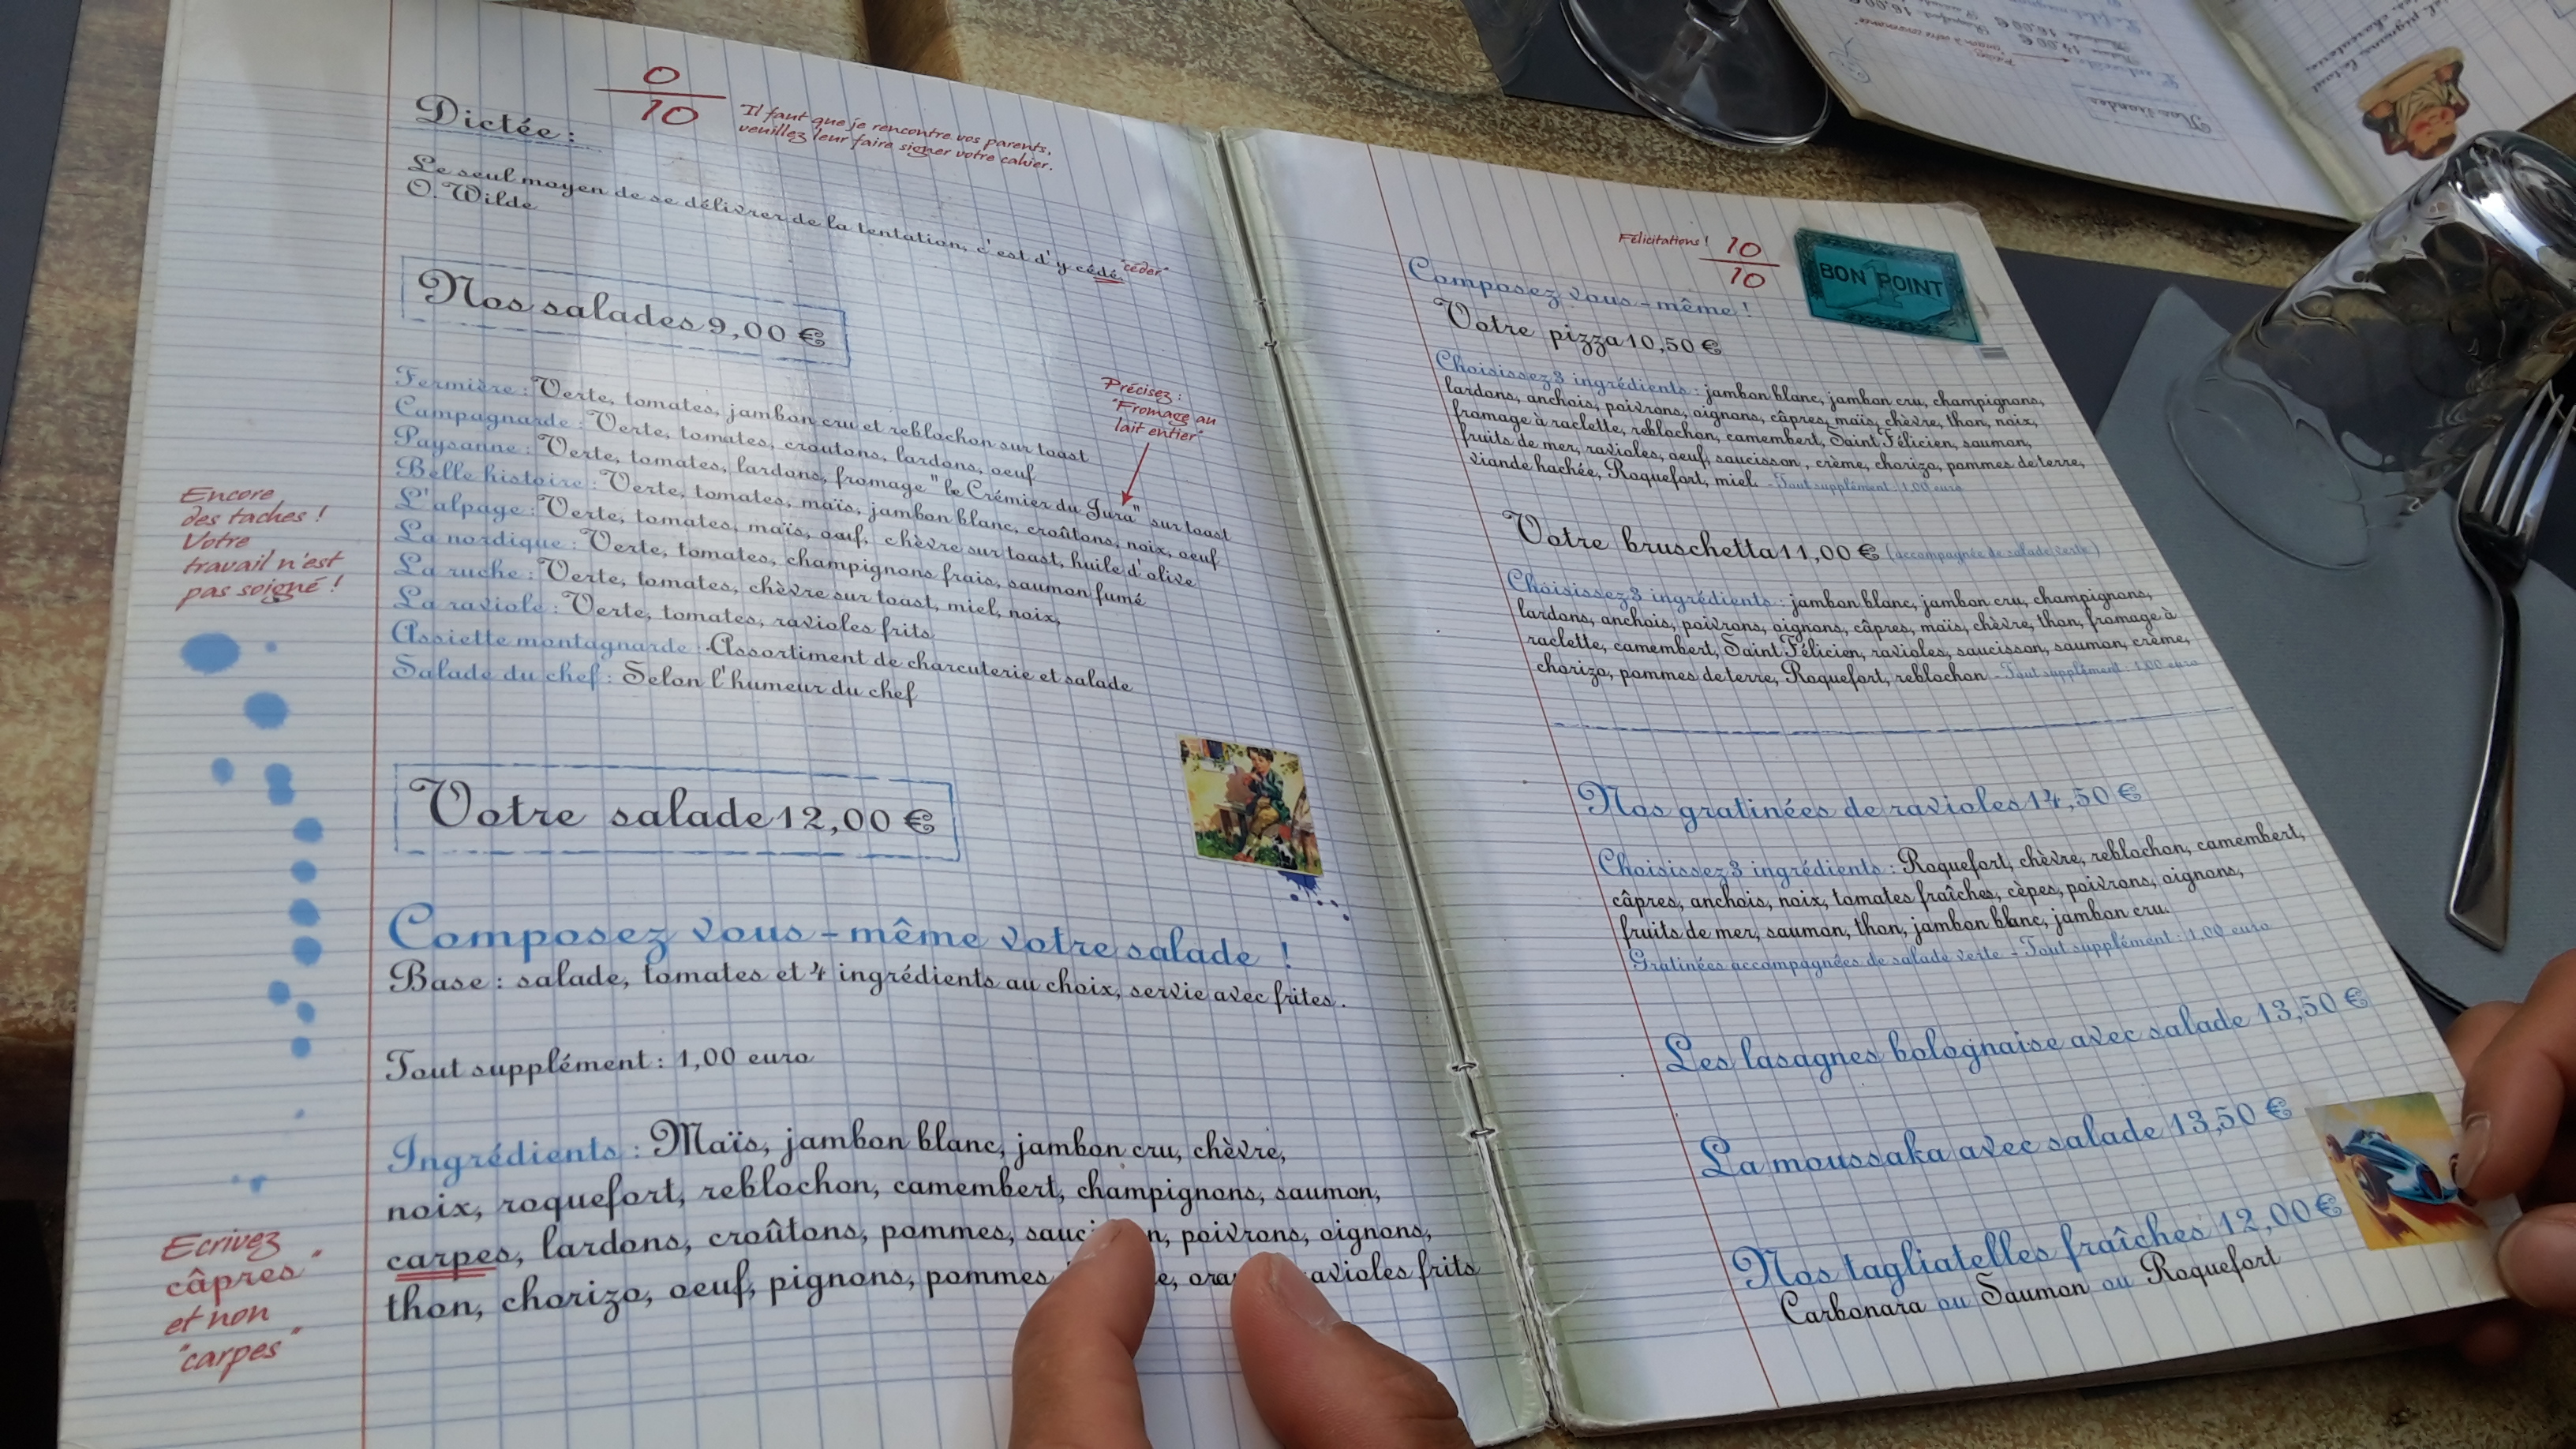 0
10
Il faut que je rencontre vos parents,
veuillez leur faire signer votre cahier.
Dictée :
Le seul moyen de se délivrer de la tentation, c'est d'y cédé "céder"
O. Wilde
Nos salades 9,00 €
Fermière : Verte, tomates, jambon cru et reblochon sur toast
Campagnarde : Verte, tomates, croutons, lardons, oeuf
Paysanne : Verte, tomates, lardons, fromage "le Crémier du Jura" sur toast
Belle histoire : Verte, tomates, maïs, jambon blanc, croûtons, noix, oeuf
L'alpage : Verte, tomates, maïs, oeuf, chèvre sur toast, huile d'olive
La nordique : Verte, tomates, champignons frais, saumon fumé
La ruche : Verte, tomates, chèvre sur toast, miel, noix,
La raviole : Verte, tomates, ravioles frits
Assiette montagnarde : Assortiment de charcuterie et salade
Salade du chef : Selon l'humeur du chef
Précisez :
"Fromage au
lait entier"
Encore
des taches !
Votre
travail n'est
pas soigné !
Votre salade 12,00 €
Composez vous-même votre salade !
Base : salade, tomates et 4 ingrédients au choix, servie avec frites.
Tout supplément : 1,00 euro
Ingrédients : Maïs, jambon blanc, jambon cru, chèvre,
noix, roquefort, reblochon, camembert, champignons, saumon,
carpes, lardons, croûtons, pommes, poivrons, oignons,
thon, chorizo, oeuf, pignons, pommes frits
Ecrivez
câpres"
et non
"carpes"
Félicitations !
10
10
BON POINT
1
Composez vous-même !
Votre pizza 10,50 €
Choisissez 3 ingrédients : jambon blanc, jambon cru, champignons,
lardons, anchois, poivrons, oignons, câpres, maïs, chèvre, thon, noix,
fromage à raclette, reblochon, camembert, Saint Félicien, saumon,
fruits de mer, ravioles, oeuf, saucisson, crème, chorizo, pommes de terre,
viande hachée, Roquefort, miel. - Tout supplément : 1,00 euro
Votre bruschetta 11,00 € (accompagnée de salade verte)
Choisissez 3 ingrédients : jambon blanc, jambon cru, champignons,
lardons, anchois, poivrons, oignons, câpres, maïs, chèvre, thon, fromage à
raclette, camembert, Saint Félicien, ravioles, saucisson, saumon, crème,
chorizo, pommes de terre, Roquefort, reblochon - Tout supplément : 1,00 euro
Nos gratinées de ravioles 14,50 €
Choisissez 3 ingrédients : Roquefort, chèvre, reblochon, camembert,
câpres, anchois, noix, tomates fraîches, cèpes, poivrons, oignons,
fruits de mer, saumon, thon, jambon blanc, jambon cru.
Gratinées accompagnées de salade verte - Tout supplément : 1,00 euro
Les lasagnes bolognaise avec salade 13,50 €
La moussaka avec salade 13,50 €
Nos tagliatelles fraîches 12,00 €
Carbonara ou Saumon ou Roquefort